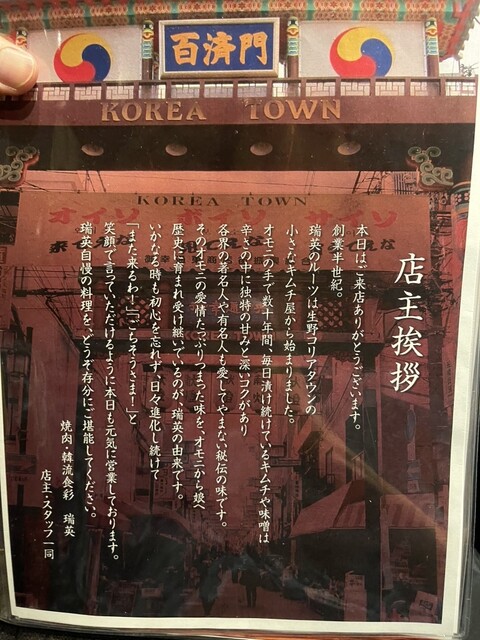 百済門
KOREA TOWN
KOREA TOWN
オイソ ボイソ サイソ
店主挨拶
本日はご来店ありがとうございます。
創業半世紀。
瑞英のルーツは生野コリアタウンの
小さなキムチ屋から始まりました。
オモニの手で数十年間、毎日漬け続けているキムチや味噌は
辛さの中に独特の甘みと深いコクがあり
各界の著名人や有名人も愛してやまない秘伝の味です。
そのオモニの愛情たっぷりつまった味を、オモニから娘へ
歴史に育まれ受け継いでいるのが、瑞英の由来です。
いかなる時も初心を忘れず、日々進化し続けて
「また来るわ!」「ごちそうさま!」と
笑顔で言っていただけるように本日も元気に営業しております。
瑞英自慢の料理を、どうぞ存分にご堪能してください。
焼肉・韓流食彩 瑞英
店主・スタッフ一同